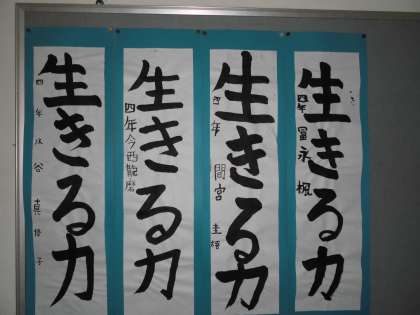 生きる力
四年 冨永 楓
生きる力
四年 間宮 圭悟
生きる力
四年 今西龍磨
生きる力
四年 谷 真 子